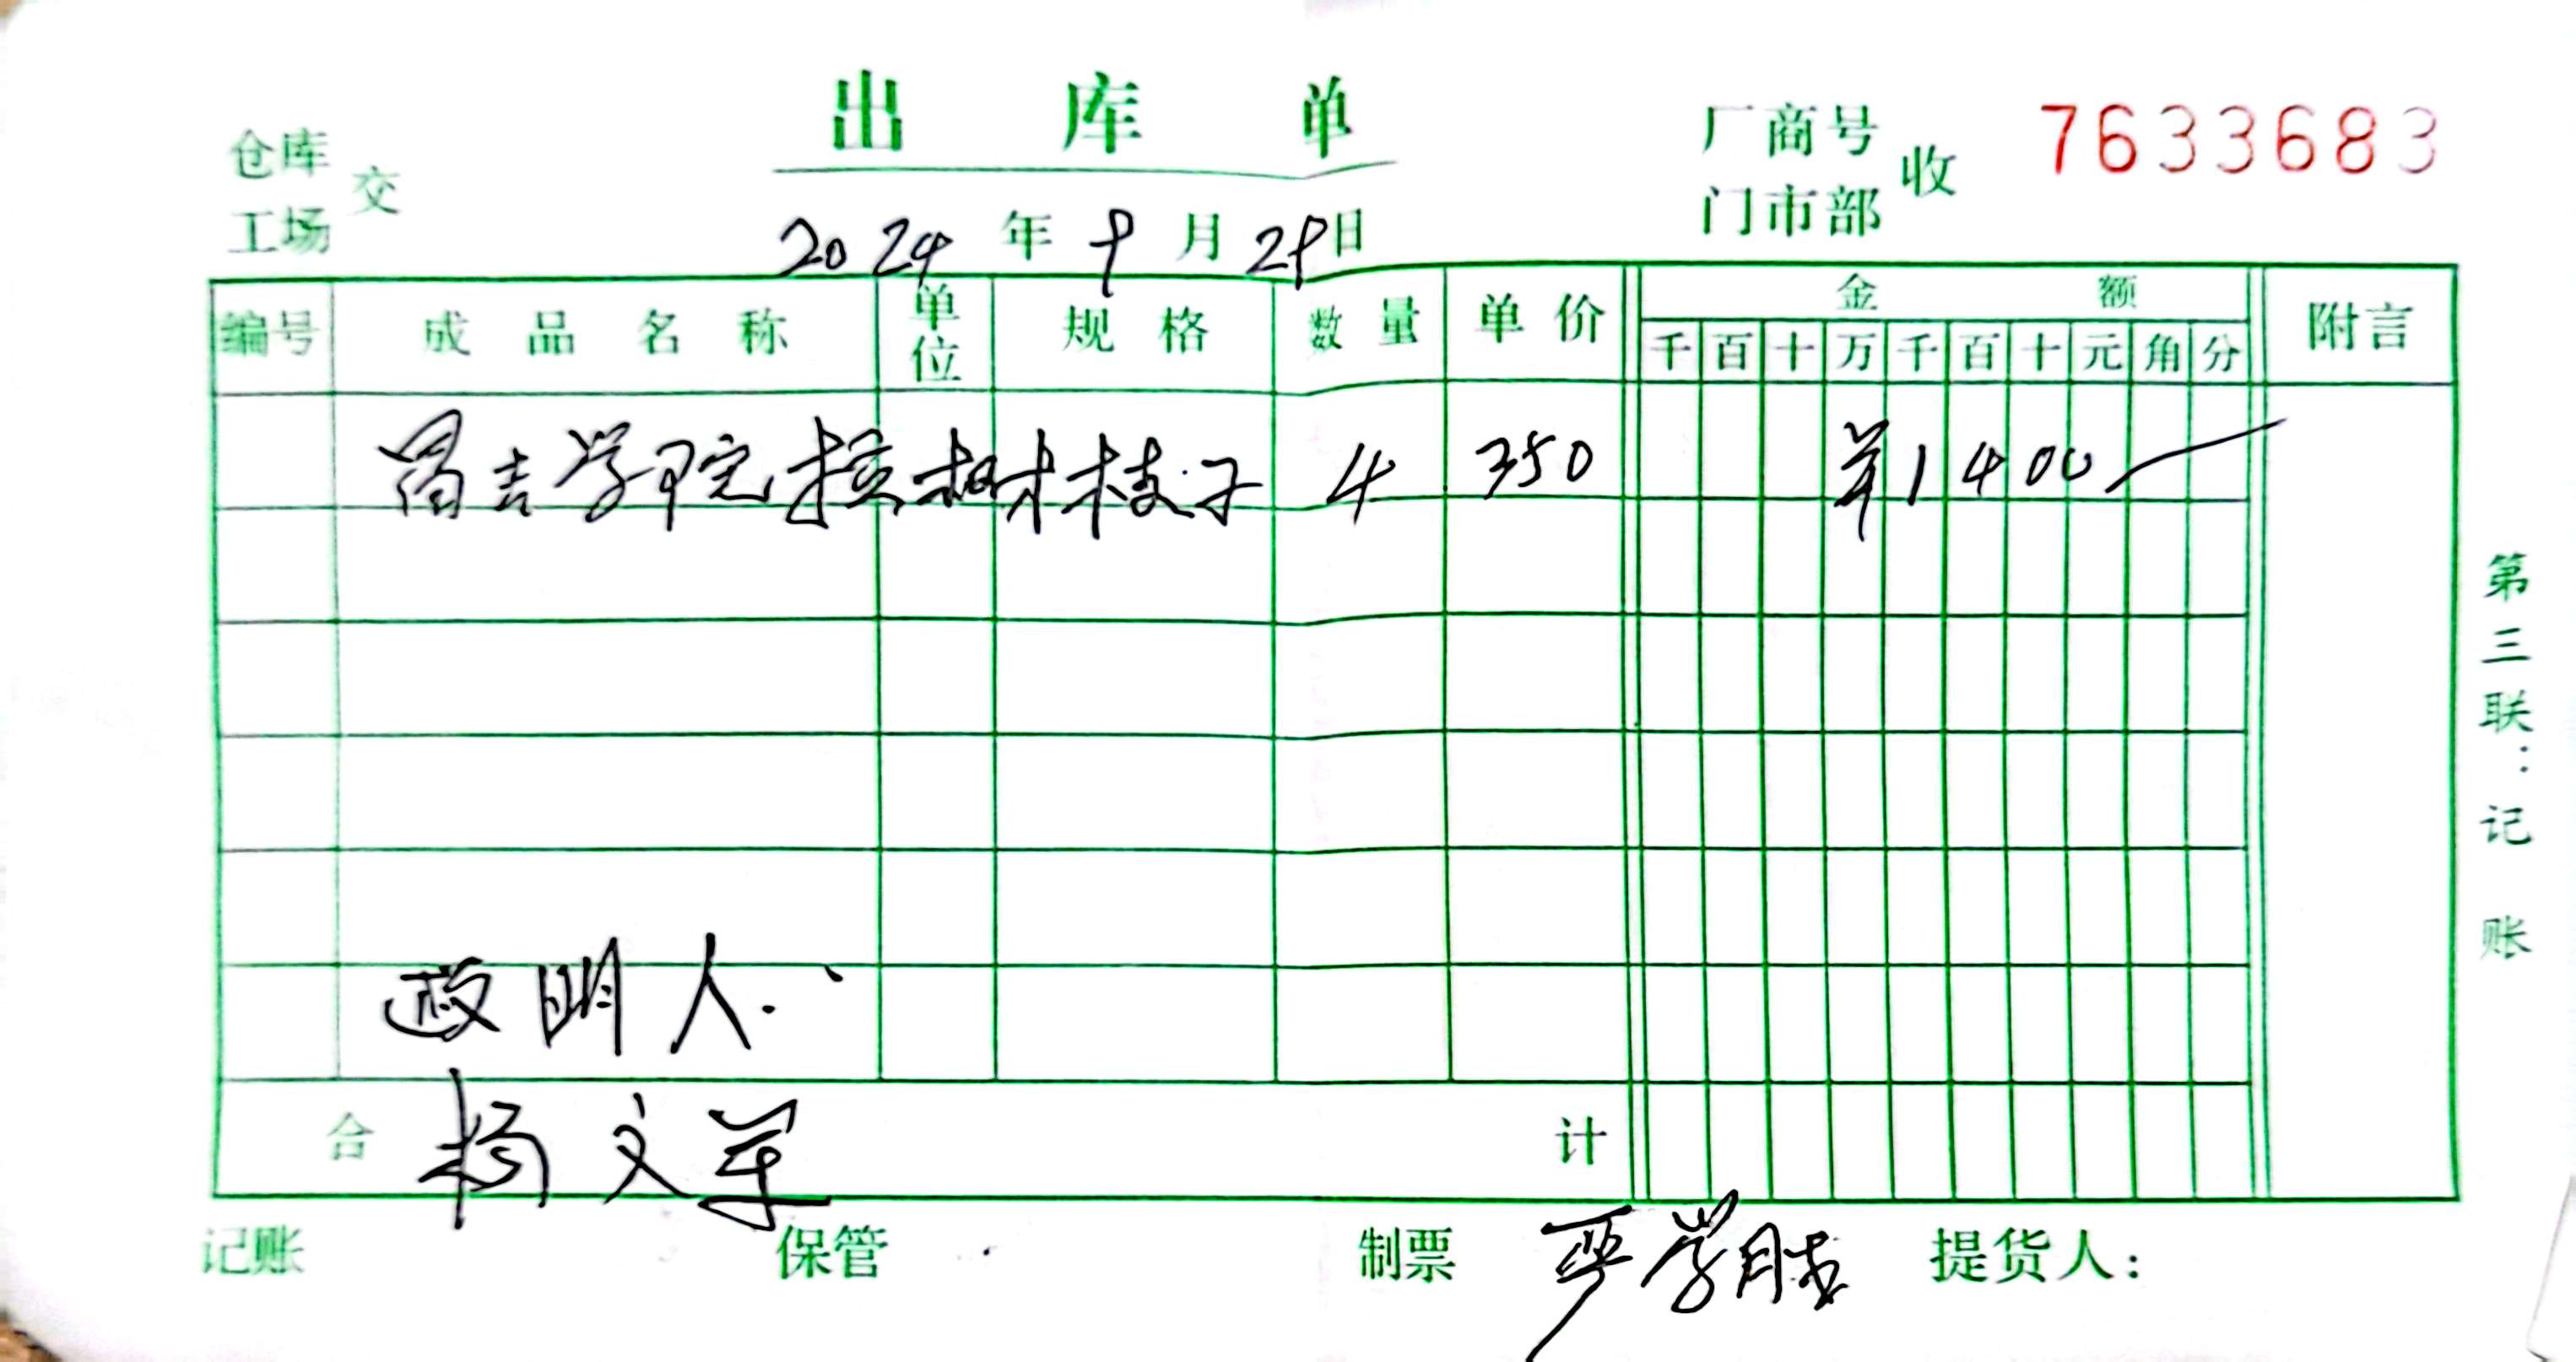 出库单
仓库
工场 交
厂商号
门市部 收
7633683
2024年9月29日
编号 成品名称 单位 规格 数量 单价 金额 附言
千 百 十 万 千 百 十 元 角 分
昌吉学院拉树枝子 4 350 ¥1400
明人:
合 杨文军 计
记账 保管 制票 严学胜 提货人:
第三联:记账